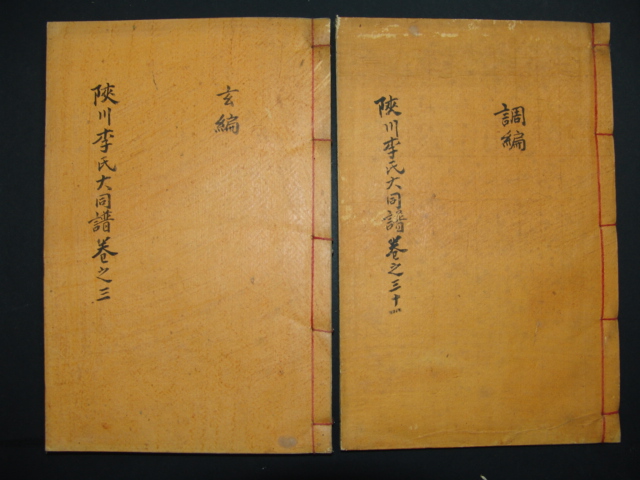 調編
陜川李氏大同譜卷之三十四
玄編
陜川李氏大同譜卷之三